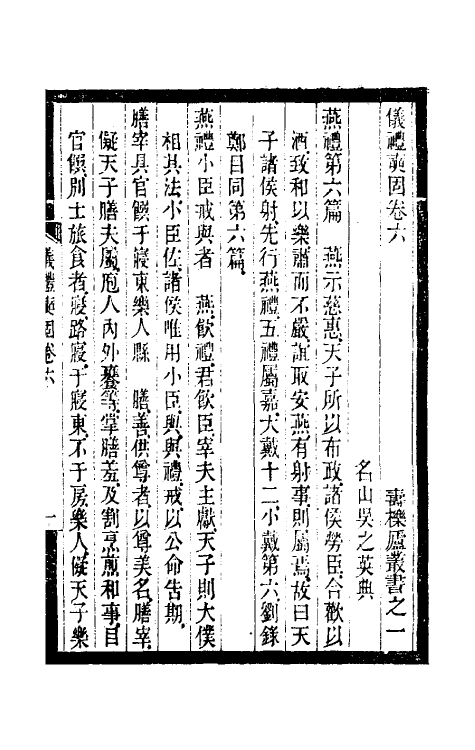 儀禮奭固卷六 壽櫟廬叢書之一
名山吳之英典
燕禮第六篇 燕示慈惠天子所以布政諸侯勞臣合歡以
酒致和以樂肅而不嚴誼取安燕有射事則屬焉故曰天
子諸侯射先行燕禮五禮屬嘉大戴十二小戴第六劉錄
鄭目同第六篇
燕禮小臣戒與者 燕飲禮君飲臣宰夫主獻天子則大僕
相其法小臣佐諸侯唯用小臣與與禮戒以公命告期
膳宰具官饌于寢東樂人縣 膳善供尊者以尊美名膳宰
儗天子膳夫屬庖人內外饔等掌膳羞及割烹煎和事目
官饌別士旅食者寢路寢于寢東不于房樂人儗天子樂
儀禮奭固卷六 一